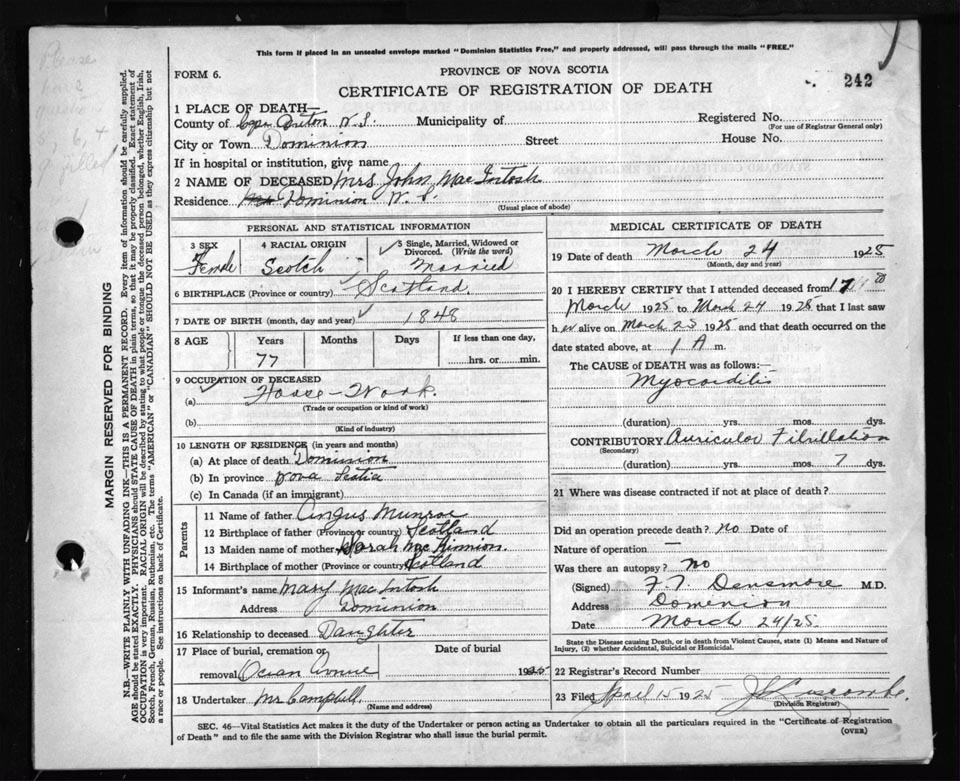 This form if placed in an unsealed envelope marked "Dominion Statistics Free," and properly addressed, will pass through the mails "FREE."
FORM 6.
PROVINCE OF NOVA SCOTIA
CERTIFICATE OF REGISTRATION OF DEATH
242
1 PLACE OF DEATH—
County of Cape Breton N.S. Municipality of Registered No.
(For use of Registrar General only)
City or Town Dominion Street House No.
If in hospital or institution, give name
2 NAME OF DECEASED Mrs John MacIntosh
Residence Dominion N.S.
(Usual place of abode)
PERSONAL AND STATISTICAL INFORMATION
3 SEX Female
4 RACIAL ORIGIN Scotch
5 Single, Married, Widowed or Divorced. (Write the word) Married
6 BIRTHPLACE (Province or country) Scotland
7 DATE OF BIRTH (month, day and year) 1848
8 AGE Years Months Days If less than one day,
77 hrs. or min.
9 OCCUPATION OF DECEASED
(a) House-Work.
(Trade or occupation or kind of work)
(b)
(Kind of industry)
10 LENGTH OF RESIDENCE (in years and months)
(a) At place of death Dominion
(b) In province Nova Scotia
(c) In Canada (if an immigrant)
Parents
11 Name of father Angus Munroe
12 Birthplace of father (Province or country) Scotland
13 Maiden name of mother Sarah MacKinnion.
14 Birthplace of mother (Province or country) Scotland
15 Informant's name Mary MacIntosh
Address Dominion
16 Relationship to deceased Daughter
17 Place of burial, cremation or Date of burial
removal 1925
18 Undertaker Mr Campbell.
(Name and address)
MEDICAL CERTIFICATE OF DEATH
19 Date of death March 24 1925
(Month, day and year)
20 I HEREBY CERTIFY that I attended deceased from 17
March 1925 to March 24 1925 that I last saw
her alive on March 23 1925 and that death occurred on the
date stated above, at 1 A m.
The CAUSE of DEATH was as follows:—
Myocarditis
(duration) yrs. mos. dys.
CONTRIBUTORY Auricular Fibrillation
(Secondary)
(duration) yrs. mos. 7 dys.
21 Where was disease contracted if not at place of death?
Did an operation precede death? No Date of
Nature of operation —
Was there an autopsy? No
(Signed) F. T. Densmore M.D.
Address Dominion
Date March 24/25
State the Disease causing Death, or in death from Violent Causes, state (1) Means and Nature of Injury, (2) whether Accidental, Suicidal or Homicidal.
22 Registrar's Record Number
23 Filed April 1925
(Division Registrar)
SEC. 46—Vital Statistics Act makes it the duty of the Undertaker or person acting as Undertaker to obtain all the particulars required in the "Certificate of Registration
of Death" and to file the same with the Division Registrar who shall issue the burial permit.
(OVER)
MARGIN RESERVED FOR BINDING
N.B.—WRITE PLAINLY WITH UNFADING INK—THIS IS A PERMANENT RECORD. Every item of information should be carefully supplied.
AGE should be stated EXACTLY. PHYSICIANS should STATE CAUSE OF DEATH in plain terms, so that it may be properly classified. Exact statement of
OCCUPATION is very important. RACIAL ORIGIN will be described by stating to what people or tongue the deceased person belonged, whether English, Irish,
Scotch, French, German, Russian, Ruthenian, etc. The terms "AMERICAN" or "CANADIAN" SHOULD NOT BE USED as they express citizenship but not
a race or people. See instructions on back of Certificate.
Please
have